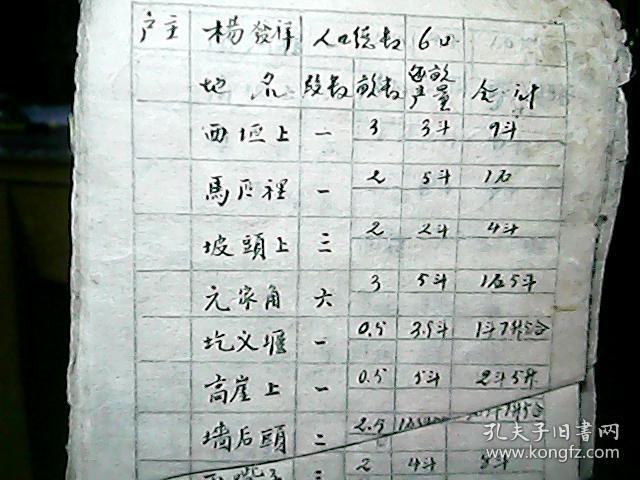 户主 楊發祥 人口総数 6口
地名 段数 亩数 每亩产量 合计
西垣上 一 3 3斗 9斗
馬后裡 一 2 5斗 1石
坡頭上 三 2 2斗 4斗
元家角 六 3 5斗 1石5斗
圪义堰 一 0.5 3.5斗 1斗7升5合
高崖上 一 0.5 5斗 2斗5升
墙后頭 二 2.5
2 4斗 8斗
孔夫子旧书网
KONGFZ.COM